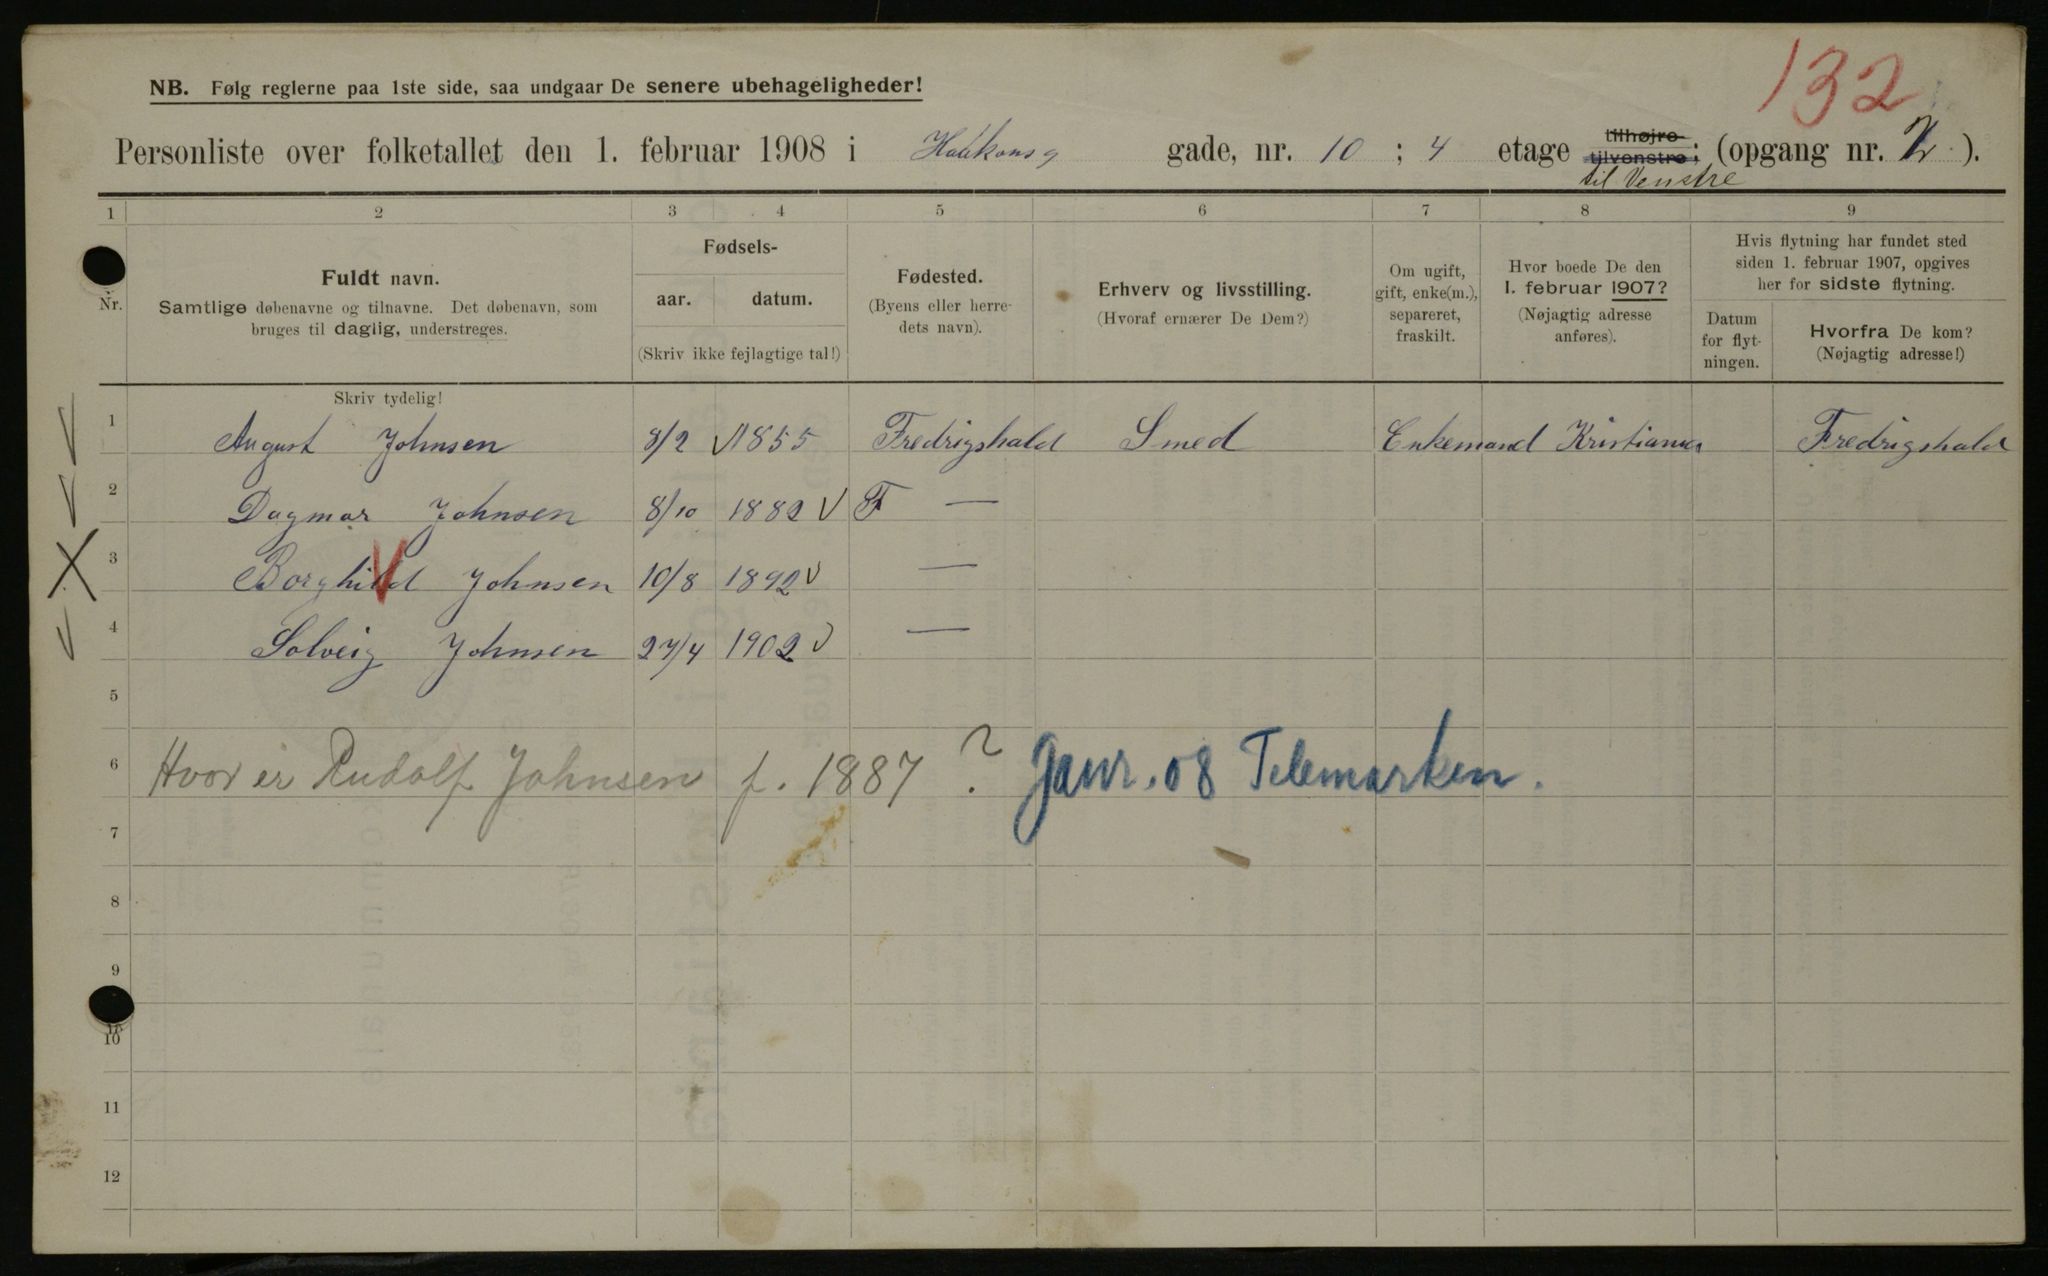 132
NB. Følg reglerne paa 1ste side, saa undgaar De senere ubehageligheder!
Personliste over folketallet den 1. februar 1908 i Haakonsg gade, nr. 10 ; 4 etage tilhøjre tilvenstre; (opgang nr. ).
til Venstre
1 2 3 4 5 6 7 8 9
Nr.
Fuldt navn.
Samtlige døbenavne og tilnavne. Det døbenavn, som
bruges til daglig, understreges.
Fødsels-
aar. datum.
(Skriv ikke fejlagtige tal!)
Fødested.
(Byens eller herre-
dets navn).
Erhverv og livsstilling.
(Hvoraf ernærer De Dem?)
Om ugift,
gift, enke(m.),
separeret,
fraskilt.
Hvor boede De den
1. februar 1907?
(Nøjagtig adresse
anføres).
Hvis flytning har fundet sted
siden 1. februar 1907, opgives
her for sidste flytning.
Datum
for flyt-
ningen.
Hvorfra De kom?
(Nøjagtig adresse!)
Skriv tydelig!
1 August Johnsen 8/2 √1855 Fredrigshald Smed Enkemand Kristiania Fredrigshald
2 Dagmar Johnsen 8/10 1882 √ F —
3 Borghild Johnsen 10/8 1892 √ —
4 Solveig Johnsen 27/4 1902 √ —
5
6 Hvor er Rudolf Johnsen f. 1887 ? Janr. 08 Telemarken.
7
8
9
10
10
11
12